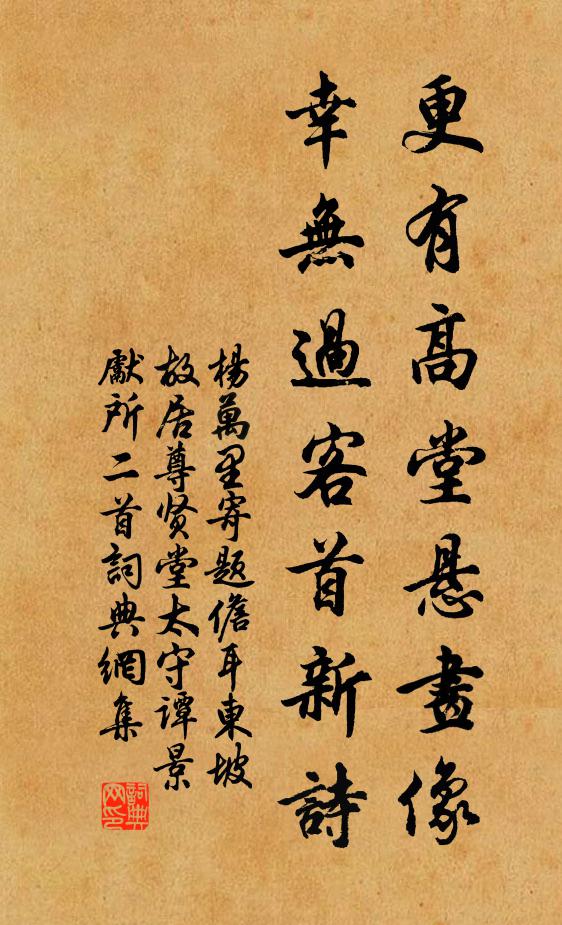 更有高堂悬畫像
幸無過客首新詩
楊萬里寄題儋耳東坡
故居尊贤堂太守譚景
獻所二首詞典網集
詞典
网印